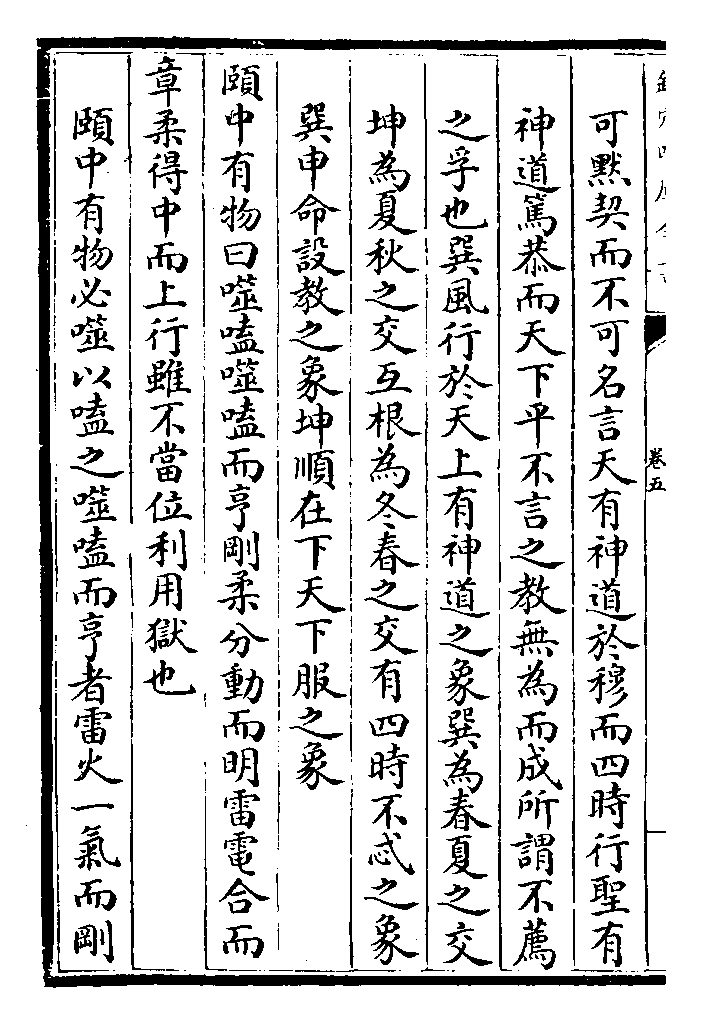 卷五
可默契而不可名言天有神道於穆而四時行聖有
神道篤恭而天下平不言之教無為而成所謂不薦
之孚也巽風行於天上有神道之象巽為春夏之交
坤為夏秋之交互根為冬春之交有四時不忒之象
巽申命設教之象坤順在下天下服之象
頤中有物曰噬嗑噬嗑而亨剛柔分動而明雷電合而
章柔得中而上行雖不當位利用獄也
頤中有物必噬以嗑之噬嗑而亨者雷火一氣而剛